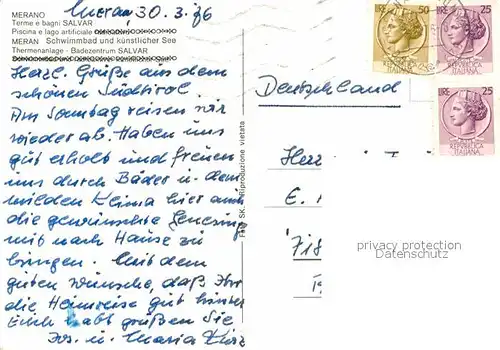 Meran 30.3.76
MERANO
Terme e bagni SALVAR
Piscina e lago artificiale
MERAN Schwimmbad und künstlicher See
Thermenanlage - Badezentrum SALVAR
Herzl. Grüße aus dem
schönen Südtirol.
Am Sonntag reisen wir
wieder ab. Haben uns
gut erholt und freuen
uns durch Bäder u. dem
milden Klima hier auch
die gewünschte Genesung
mit nach Hause zu
bringen. Mit dem
guten Wunsche, daß Ihr
die Heimreise gut hinter
Euch habt grüßen Sie
Jos. u. Maria
SK. Riproduzione vietata
LIRE 50
LIRE 25
REPVBBLICA
ITALIANA
LIRE 25
REPVBBLICA
ITALIANA
Deutschland
Herr
E.
privacy protection
Datenschutz